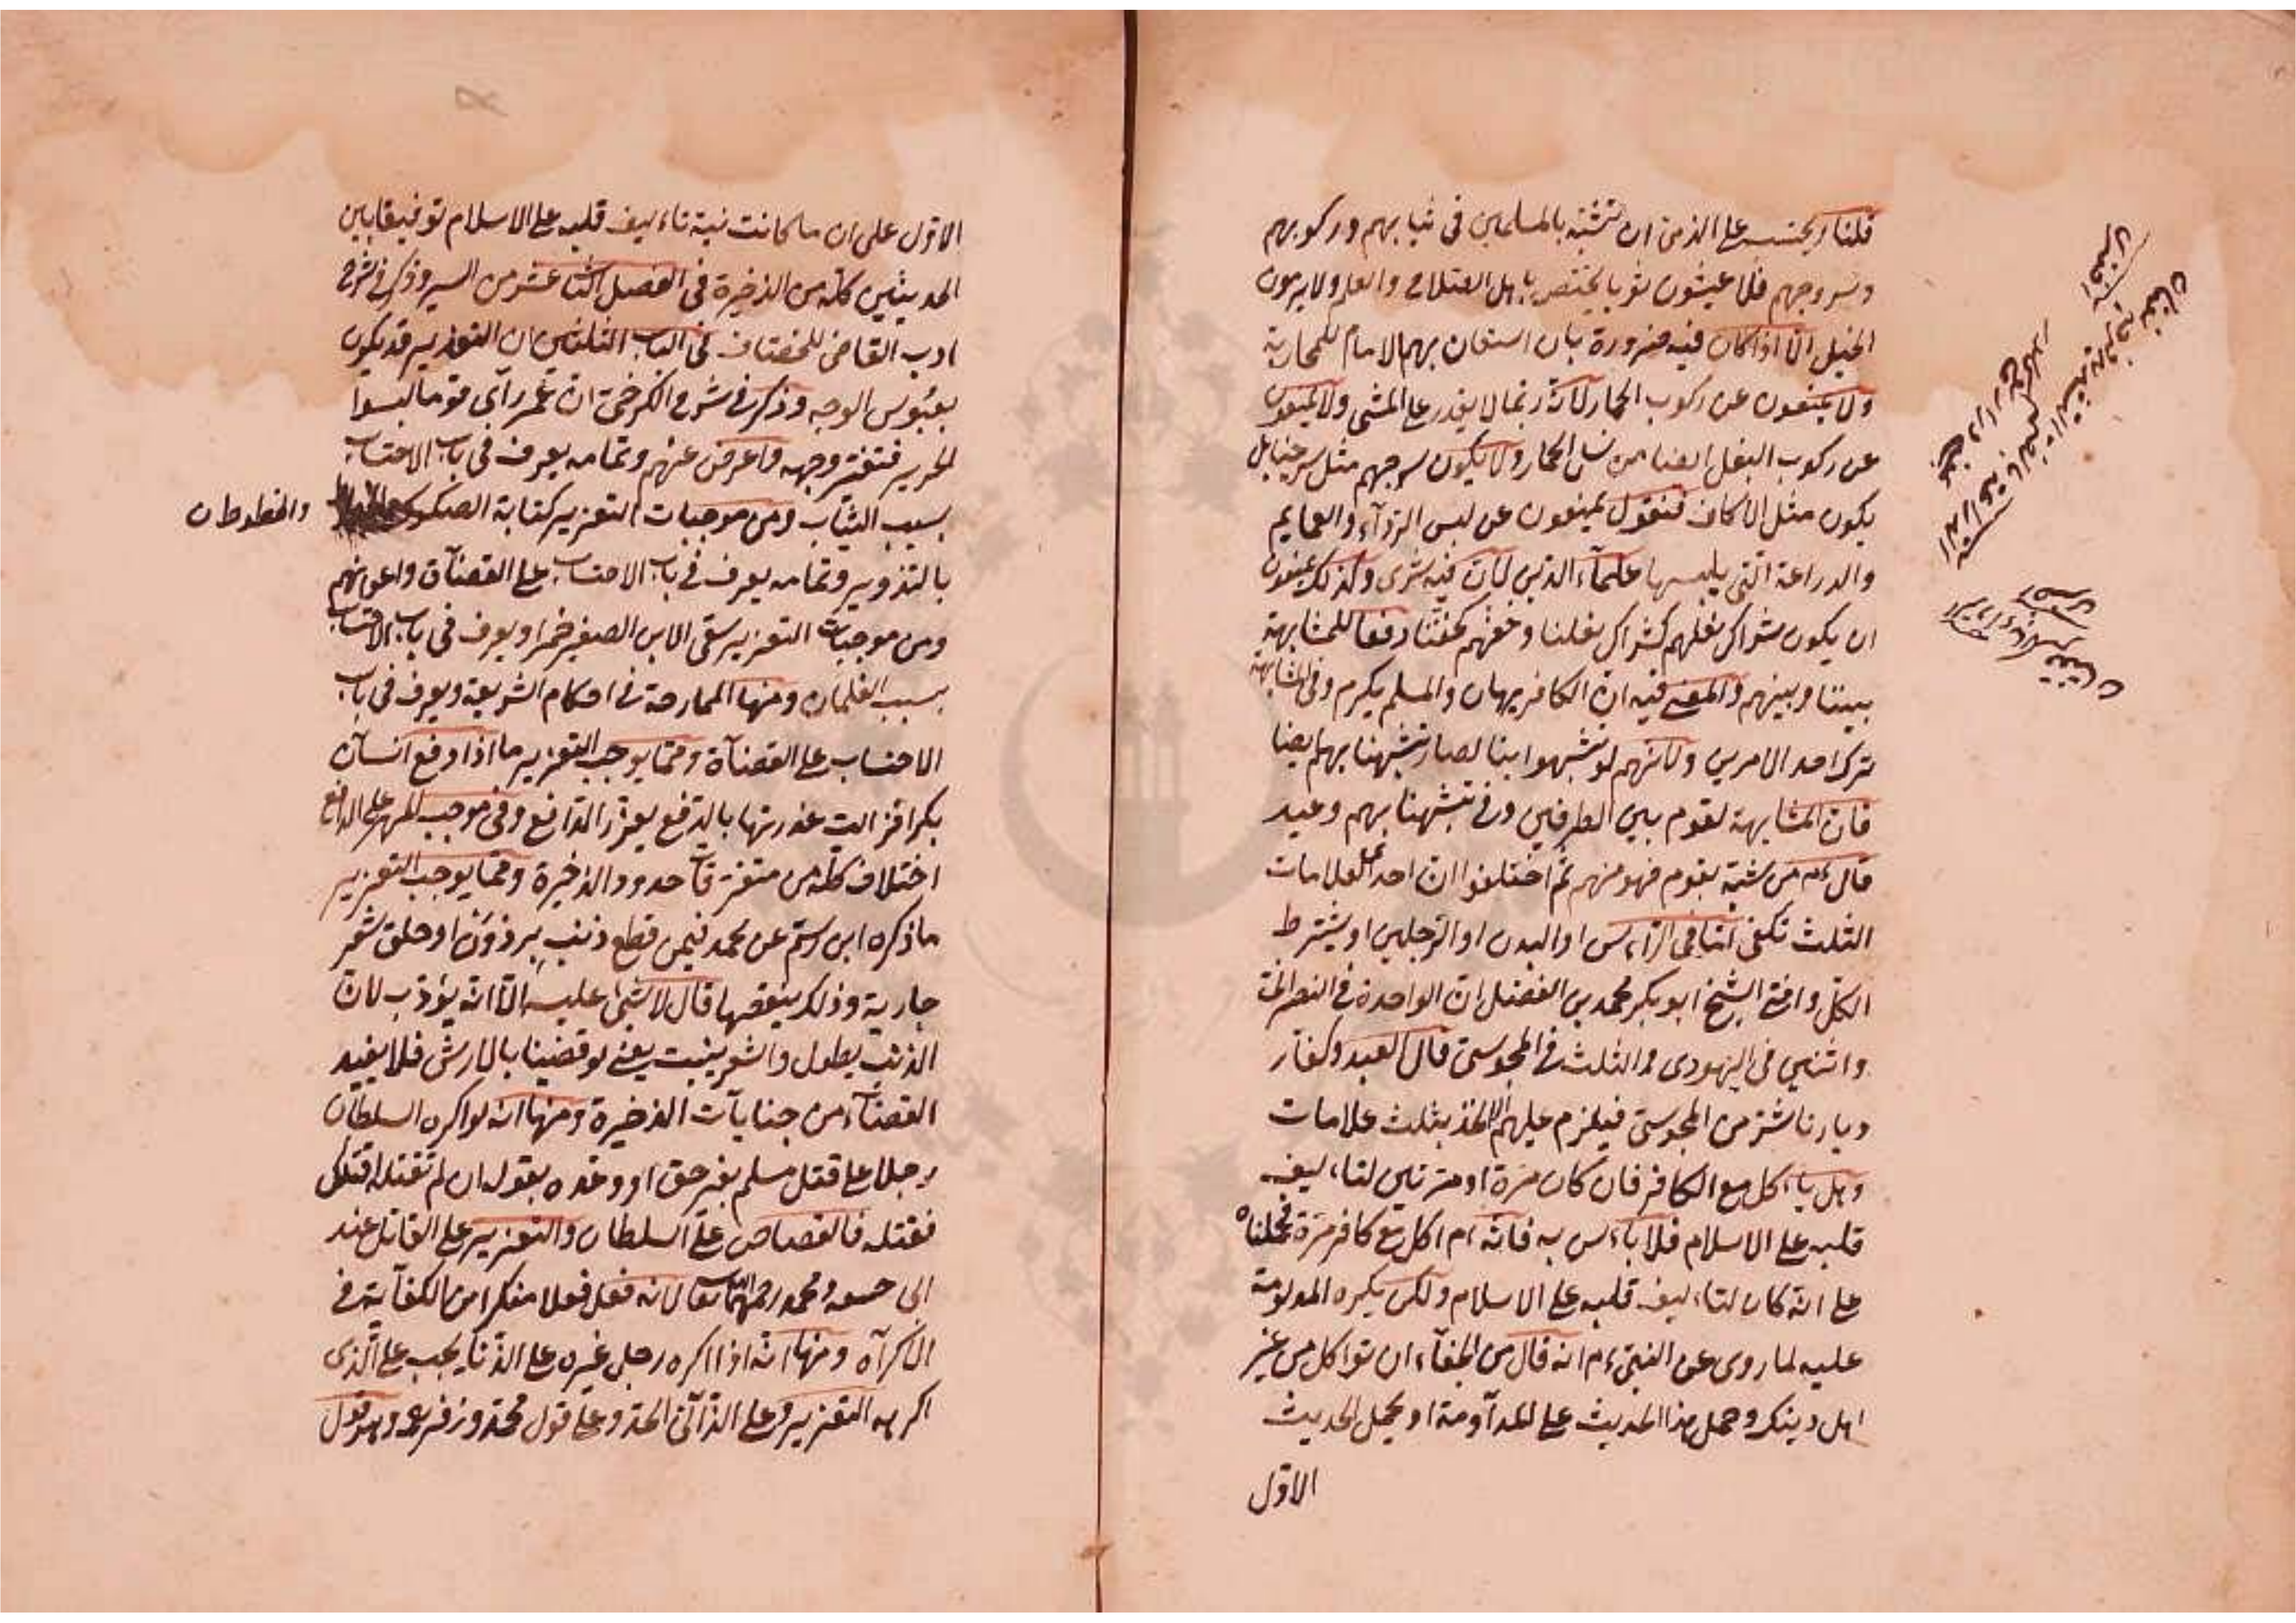 قلنا ويحتسب على الذمى ان تشبه بالمسلمين فى ثيابهم وركوبهم
وسروجهم فلا يلبسون ثوبا يختص باهل الصلاح والعلم ولا يركبون
الخيل الا اذا كان فيه ضرورة بان استعان بهم الامام للمحاربة
ولا يمنعون عن ركوب الحمار لانه ربما لا يقدر على المشى ولا يمنعون
عن ركوب البغل ايضا من نسل الحمار ولا يكون سرجهم مثل سرجنا بل
يكون مثل الاكاف فنقول يمنعون عن لبس الردآء والعمايم
والدراعة التى يلبسها علمآء الدين لان فيه شرى وكذلك يمنعون
ان يكون شراك نعلهم كشراك نعلنا وخفهم كخفنا دفعا للمشابهة
بيننا وبينهم والمعنى فيه ان الكافر يهان والمسلم يكرم وفى المشابهة
ترك احد الامرين ولانهم لو تشبهوا بنا لصار تشبهنا بهم ايضا
فان المشابهة تقوم بين الطرفين وفى تشبهنا بهم وعيد
قال عم من تشبه بقوم فهو منهم ثم اختلفوا ان احد العلامات
الثلث تكفى اما فى الراءس او البدن او الرجلين او يشترط
الكل وافتى الشيخ ابو بكر محمد بن الفضل ان الواحدة فى النصرانى
واثنين فى اليهودى والثلث فى المجوسى قال العبد وكفار
ديارنا شر من المجوسى فيلزم عليهم الاخذ بثلث علامات
وهل ياءكل مع الكافر فان كان مرة او مرتين لتاءليف
قلبه على الاسلام فلا باءس به فانه ءم اكل مع كافر مرة فحملناه
على انه كان لتاءليف قلبه على الاسلام ولكن يكره المداومة
عليه لما روى عن النبى ءم انه قال من الجفآء ان تواكل من غير
اهل دينك وحمل هذا الحديث على المدآومة او يحمل الحديث
الاول
الاول على ان ما كانت نية تاءليف قلبه على الاسلام توفيقا بين
الحديثين كله من الذخيرة فى الفصل الثا عشر من السير وذكر فى شرح
ادب القاضى للخصاف فى الباب الثلثين ان التعزير قد يكون
بعبوس الوجه وذكر فى شرح الكرخى ان عمر رآى قوما لبسوا
الحرير فتغير وجهه واعرض عنهم وتمامه يعرف فى باب الاحتساب
بسبب الثياب ومن موجبات التعزير كتابة الصكوك
والخطوط ن
بالتزوير وتمامه يعرف فى باب الاحتساب على القضآة واعوانهم
ومن موجبات التعزير سقى الابن الصغير خمرا ويعرف فى باب الاحتساب
بسبب الغلمان ومنها الممارحة فى احكام الشريعة ويعرف فى باب
الاحتساب على القضآة ومما يوجب التعزير ما اذا دفع انسآن
بكرا فزالت عذرتها بالدفع يعزر الدافع وفى موجب المهر على الدافع
اختلاف كله من متفرقآ حدود الذخيرة ومما يوجب التعزير
ما ذكره ابن رستم عن محمد فيمن قطع ذنب برذون او حلق شعر
جارية وذلك ينقصها قال لا شىء عليه الا انه يؤدب لان
الذنب يطول والشعر ينبت يعنى لو قضينا بالارش فلا يفيد
القضآء من جنايآت الذخيرة ومنها انه لو اكره السلطان
رجلا على قتل مسلم بغير حق او وعده بقوله ان لم تقتله اقتلك
فقتله فالقصاص على السلطان والتعزير على القاتل عند
ابى حنيفه ومحمد رحمهما الله تعالى لانه فعل فعلا منكرا من الكفآية فى
الاكرآه ومنها انه اذا اكره رجل غيره على الزنا يجب على الذى
اكرهه التعزير وعلى الزآنى الحد وعلى قول محمد وزفر رحمه وهو قول